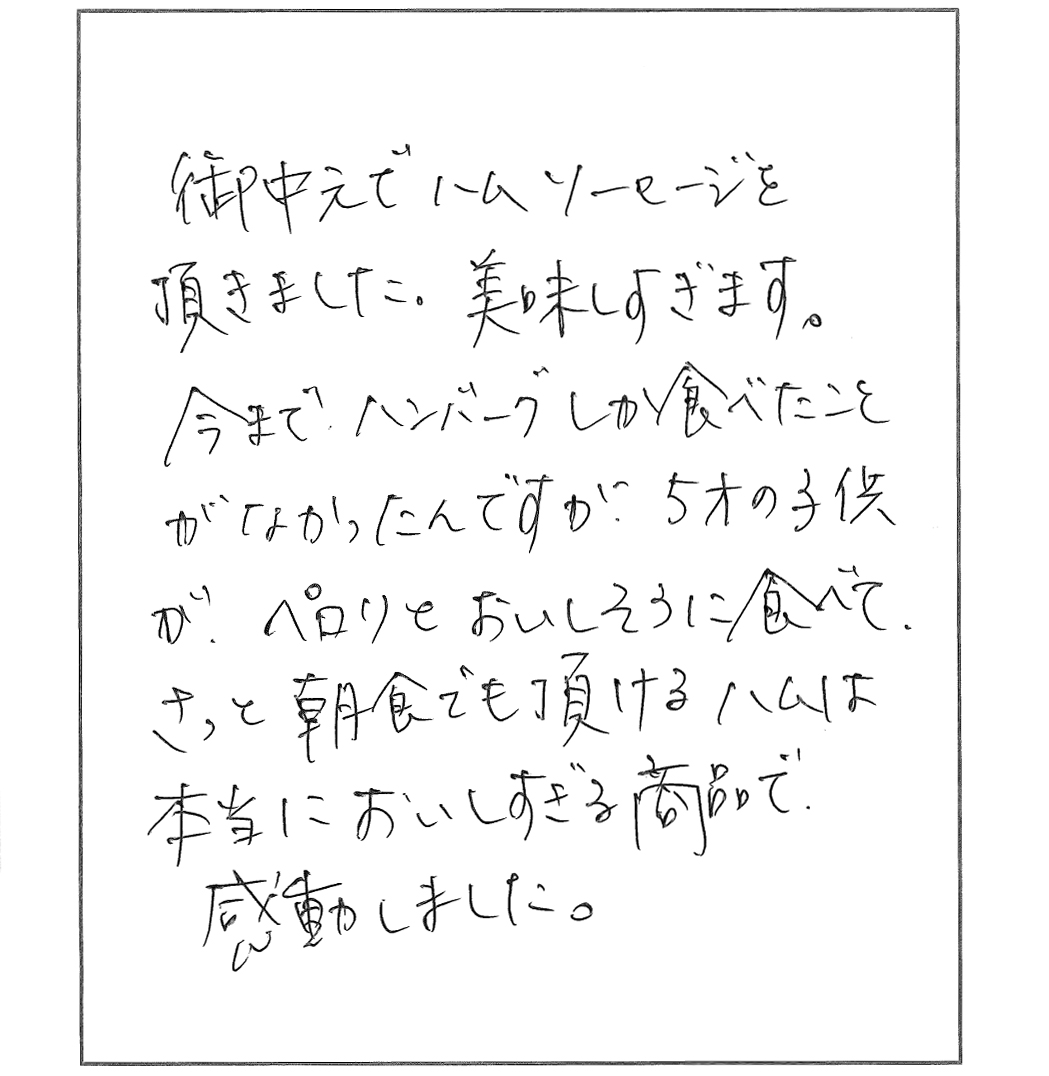 御中えでハムソーセージを
頂きました。美味しすぎます。
今まで、ハンバーグしか食べたこと
がなかったんですが、5才の子供
が、ペロリとおいしそうに食べて、
さっと朝食でも頂けるハムは
本当においしすぎる商品で、
感動しました。